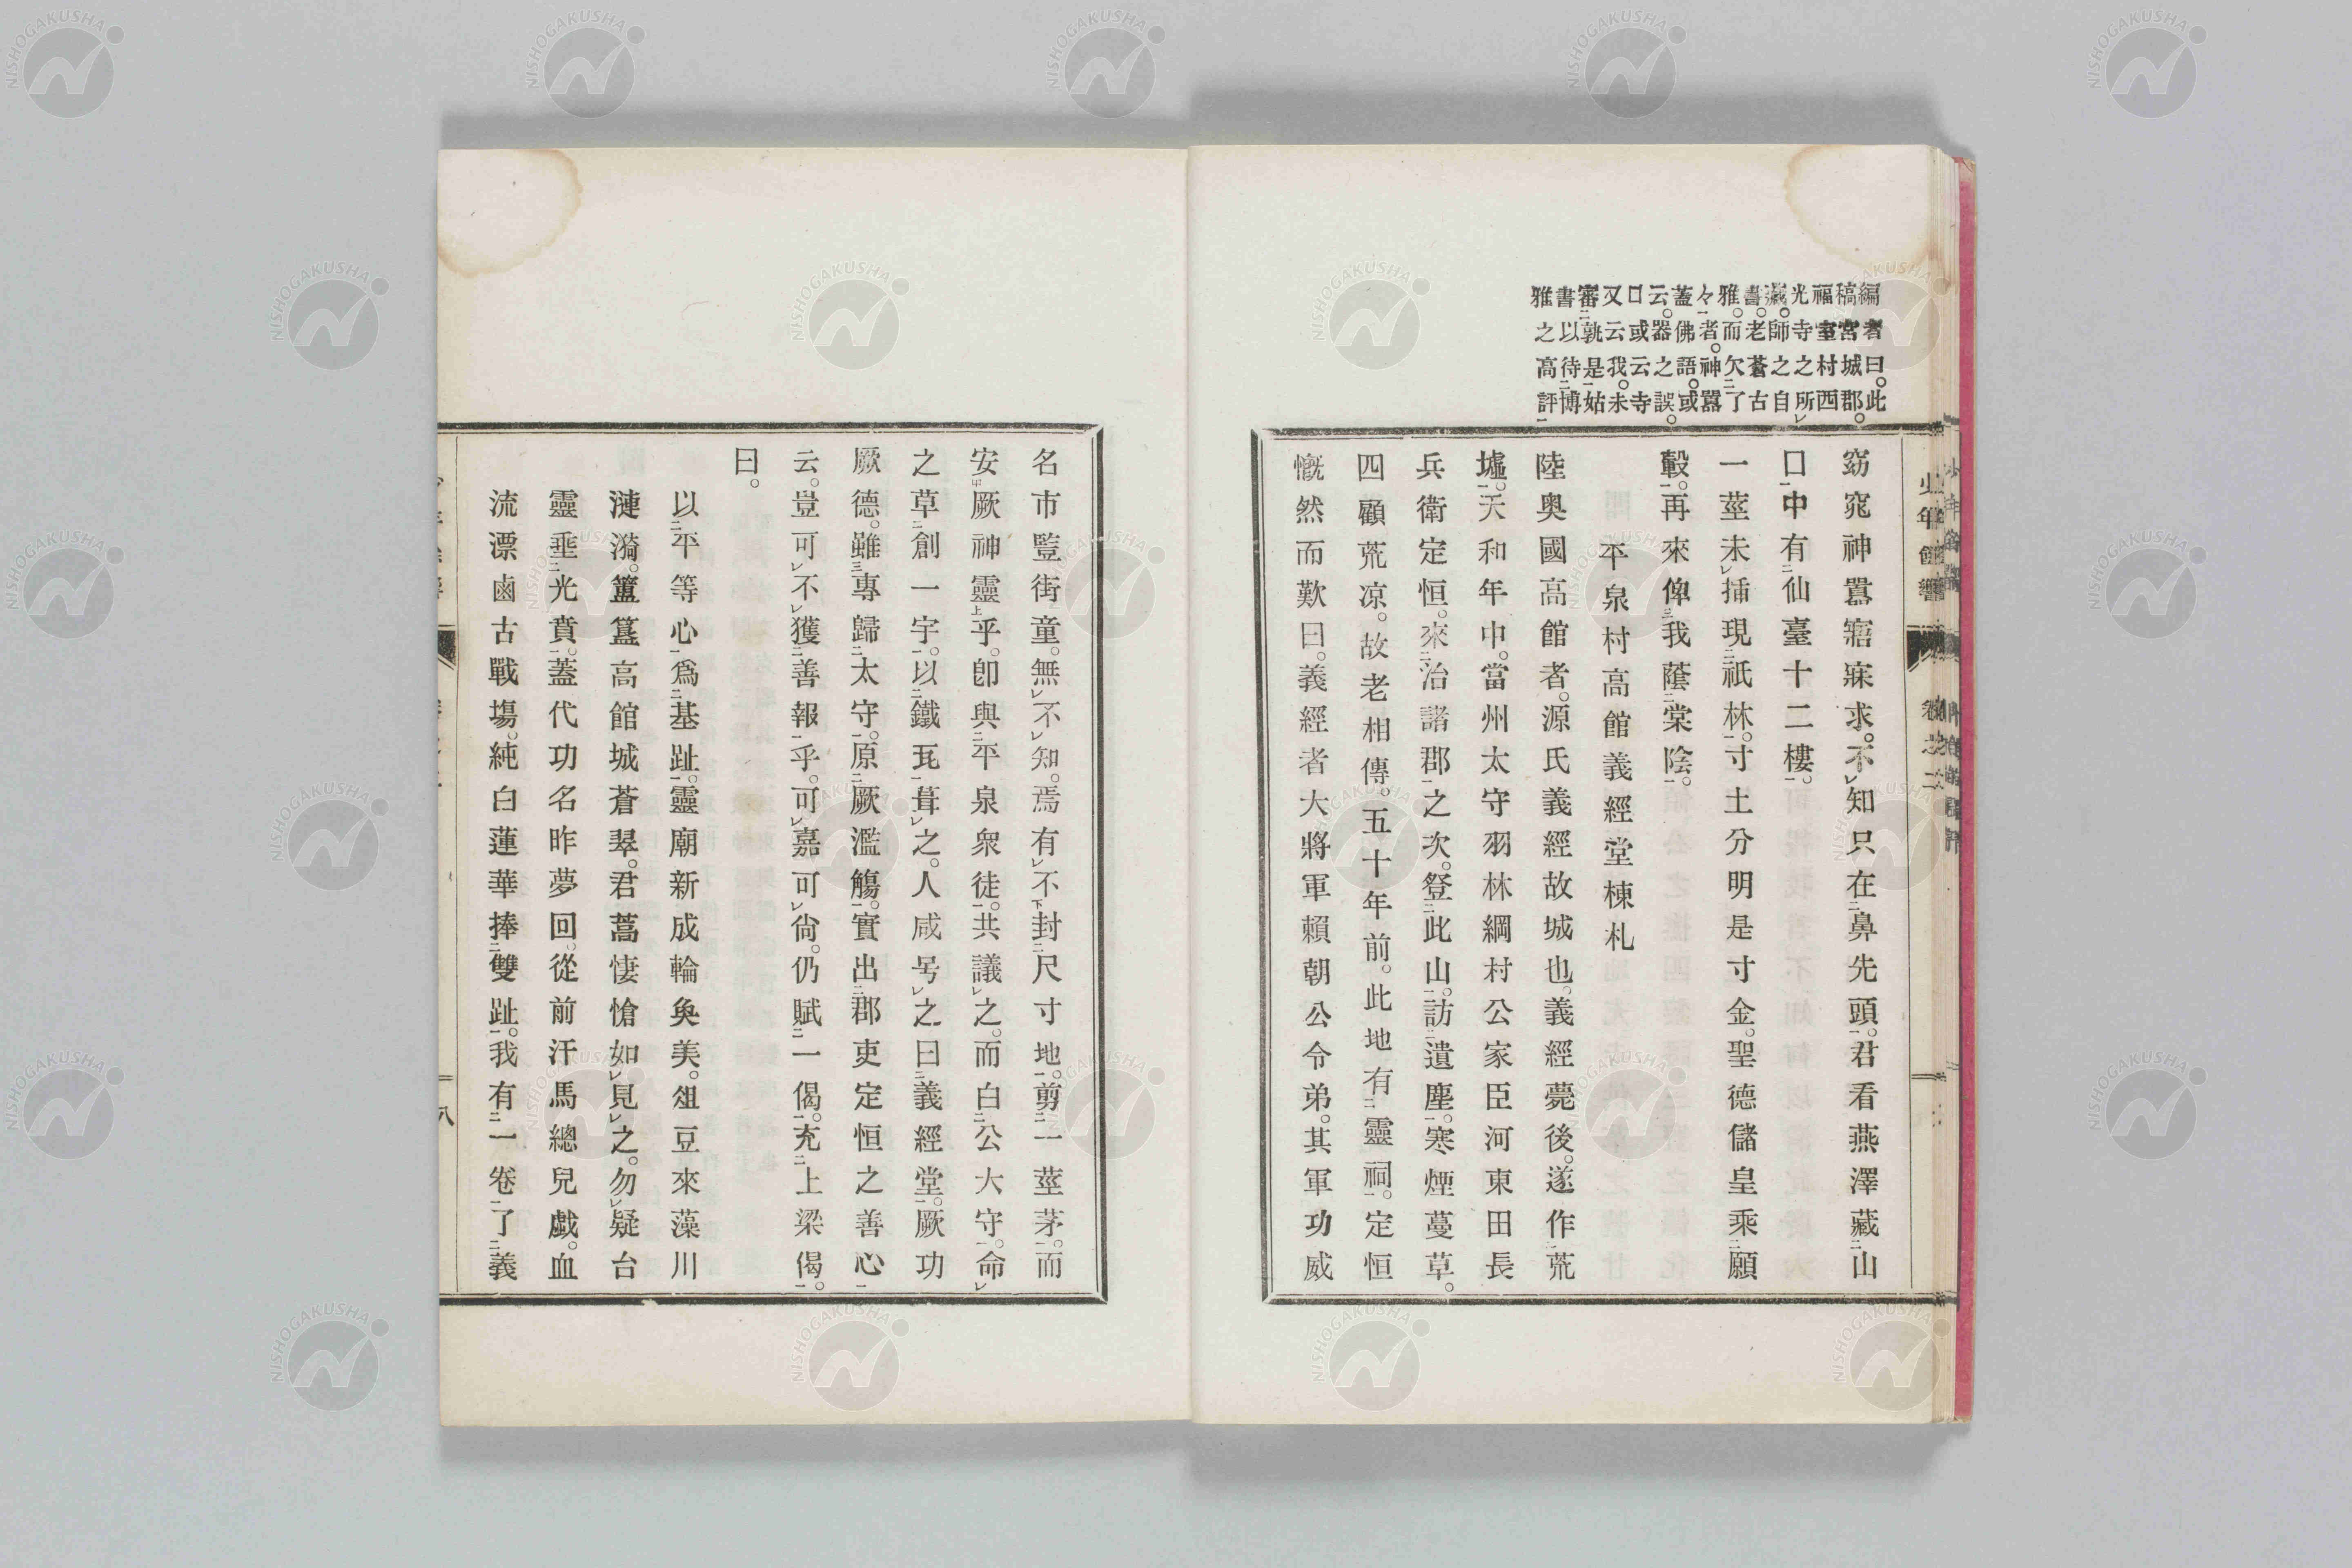 編者曰。此
稿宮城郡。
福室村西
光寺之所
藏。師之自
書。老蒼古
雅。而欠了
々者。神嚚
蓋佛語。或
云。器之誤。
口或云寺
又云我。未
審孰是姑
書以待博
雅之高評
窈窕神嚚寤寐求。不知只在鼻先頭。君看燕澤藏山
口。中有仙臺十二樓。
一莖未插現祇林。寸土分明是寸金。聖德儲皇乘願
轂。再來俾我蔭棠陰。
平泉村高館義經堂棟札
陸奥國高館者。源氏義經故城也。義經薨後。遂作荒
墟。天和年中。當州太守羽林綱村公家臣河東田長
兵衛定恒。來治諸郡之次。登此山。訪遺塵。寒煙蔓草。
四顧荒凉。故老相傳。五十年前。此地有靈祠。定恒
慨然而歎曰。義經者大將軍賴朝公令弟。其軍功威
名市豎街童。無不知。焉有不封尺寸地。剪一莖茅。而
安厥神靈乎。卽與平泉衆徒。共議之。而白公大守。命
之草創一宇。以鐵瓦葺之。人咸号之曰義經堂。厥功
厥德。雖專歸太守。原厥濫觴。實出郡吏定恒之善心
云。豈可不獲善報乎。可嘉可尙。仍賦一偈。充上梁偈。
曰。
以平等心爲基趾。靈廟新成輪奐美。俎豆來藻川
漣漪。簠簋高館城蒼翠。君蒿悽愴如見之。勿疑台
靈垂光賁。蓋代功名昨夢回。從前汗馬總兒戯。血
流漂鹵古戰塲。純白蓮華捧雙趾。我有一卷了義
八